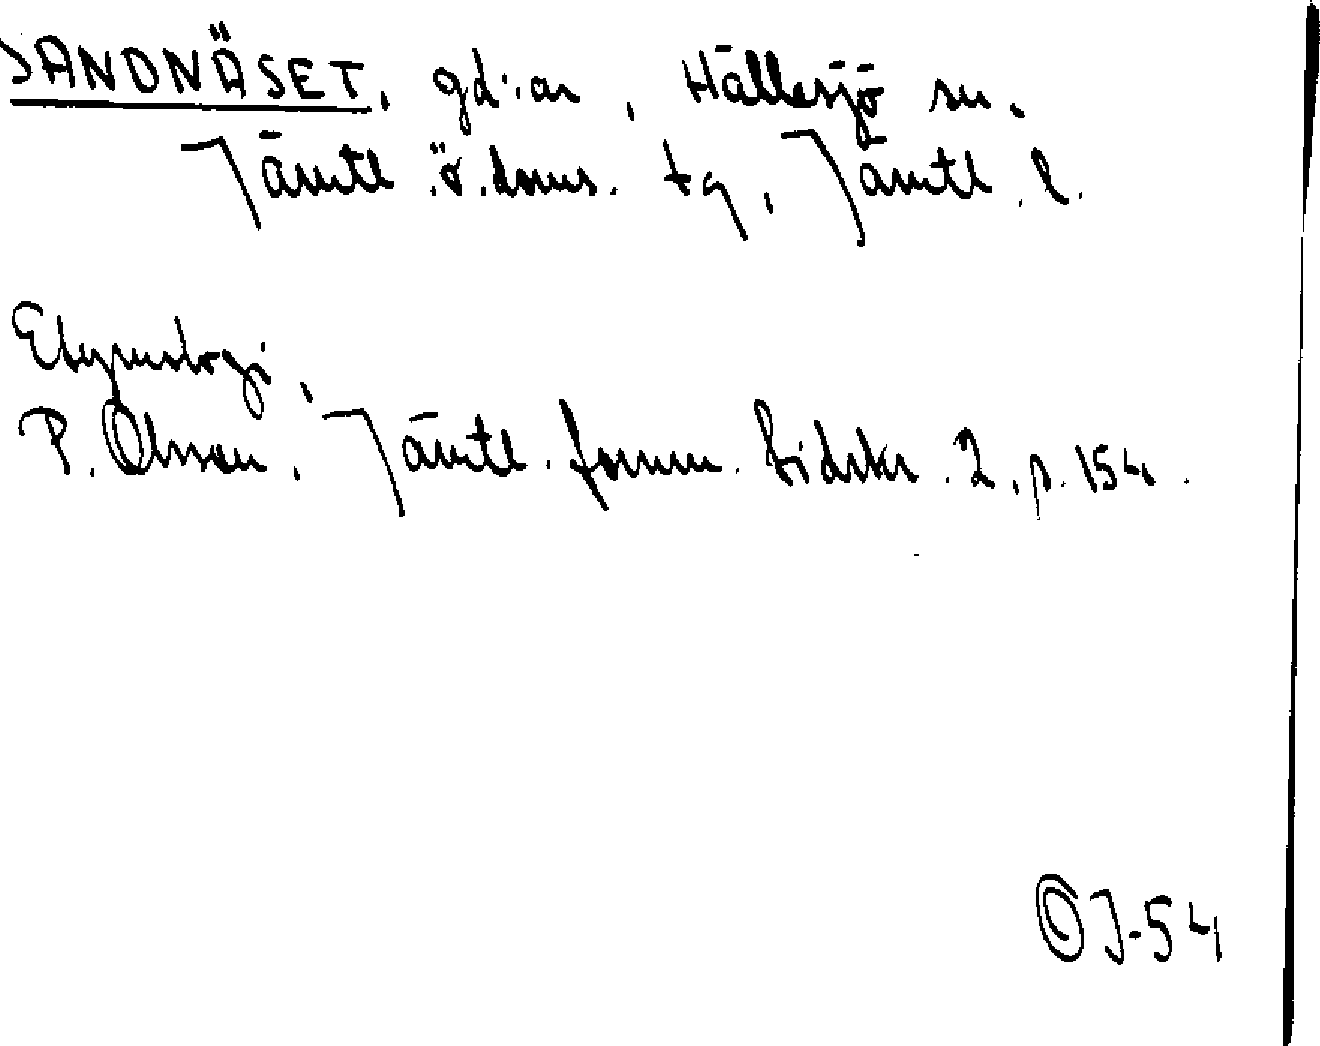 SANDNÄSET, gd:ar, Hällesjö sn.
Jämtl. ö. doms. tg, Jämtl. l.
Etymologi,
P. Olsson, Jämtl. fornm. tidskr. 2, p. 154.
J-54